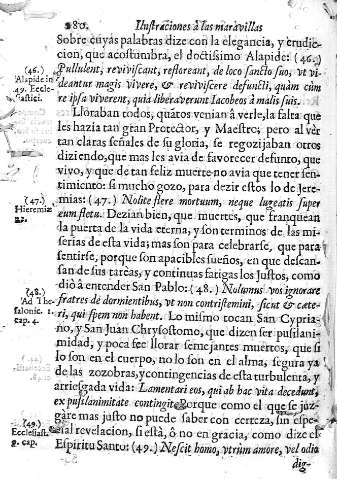 280. Ilustraciones à las maravillas
Sobre cuyas palabras dize con la elegancia, y erudi-
cion, que acostumbra, el doctissimo Alapide: (46.)
(46.)
Alapide in
49. Eccle-
siastici.
Pullulent, reviviscant, refloreant, de loco sancto suo, vt vi-
deantur magis vivere, & reviviscere defuncti, quàm cùm
re ipsa viverent, quia liberaverunt Iacobeos à malis suis.
Lloraban todos, quātos venian à verle, la falta que
les hazia tan gran Protector, y Maestro; pero al ver
tan claras señales de su gloria, se regozijaban otros
diziendo, que mas les avia de favorecer defunto, que
vivo, y que de tan feliz muerte no avia que tener sen-
timiento: si mucho gozo, para dezir estos lo de Jere-
mias: (47.) Nolite flere mortuum, neque lugeatis super
(47.)
Hieremiæ
eum fletu. Dezian bien, que muertes, que franquean
la puerta de la vida eterna, y son terminos de las mi-
serias de esta vida; mas son para celebrarse, que para
sentirse, porque son apacibles sueños, en que descan-
san de sus tareas, y continuas fatigas los Justos, como
diò à entender San Pablo: (48.) Nolumus vos ignorare
(48.)
Ad The-
salonic. 1.
cap. 4.
fratres de dormientibus, vt non contristemini, sicut & cæte-
ri, qui spem non habent. Lo mismo tocan San Cypria-
no, y San Juan Chrysostomo, que dizen ser pusilani-
midad, y poca fee llorar semejantes muertes, que si
lo son en el cuerpo, no lo son en el alma, segura ya
de las zozobras, y contingencias de esta turbulenta, y
arriesgada vida: Lamentari eos, qui ab hac vita decedunt,
ex pusilanimitate contingit: porque como el que se juz-
gare mas justo no puede saber con certeza, sin espe-
cial revelacion, si està, ò no en gracia, como dize el
(49.)
Ecclesiast.
9. cap.
Espiritu Santo: (49.) Nescit homo, vtrùm amore, vel odio
dig-